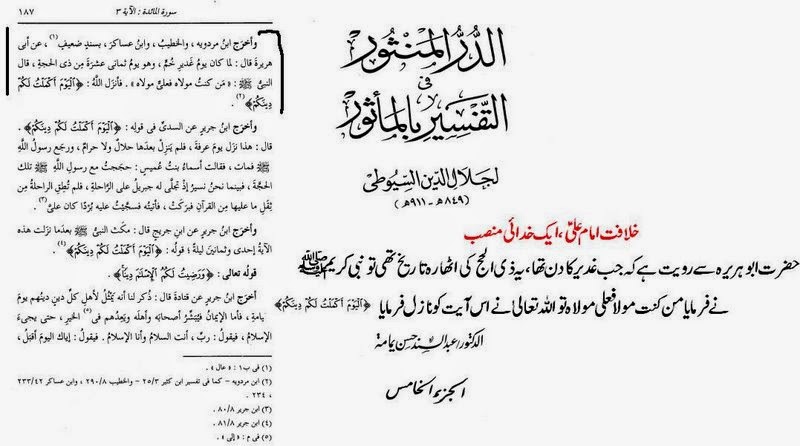 ١٨٧
سورة المائدة : الآية ٣
وأخرَج ابنُ مردويه ، والخطيبُ ، وابنُ عساكرَ ، بسندٍ ضعيفٍ(١) ، عن أبى
هريرةَ قال : لما كان يومُ غديرِ خُمٍّ ، وهو يومُ ثمانى عشْرةَ مِن ذى الحجةِ ، قال
النبىُّ ﷺ : « مَن كنتُ مولاه فعلىٌّ مولاه » . فأنزَل اللَّهُ : ﴿ٱلْيَوْمَ أَكْمَلْتُ لَكُمْ
دِينَكُمْ﴾(٢) .
وأخرَج ابنُ جريرٍ عن السدىِّ فى قولِه : ﴿ٱلْيَوْمَ أَكْمَلْتُ لَكُمْ دِينَكُمْ﴾ .
قال : هذا نزَل يومَ عرفةَ ، فلم يَنزِلْ بعدَها حلالٌ ولا حرامٌ ، ورجَع رسولُ اللَّهِ
ﷺ فمات ، فقالت أسماءُ بنتُ عُميسٍ : حجَجتُ مع رسولِ اللَّهِ ﷺ تلك
الحَجَّةَ ، فبينما نحنُ نسيرُ إذْ تجلَّى له جبريلُ على الرَّاحلةِ ، فلم تُطِقِ الراحلةُ مِن
ثِقَلِ ما عليها مِن القرآنِ فبرَكتْ ، فأتيتُه فسجَّيتُ عليه بُرْدًا كان علىَّ(٣) .
وأخرَج ابنُ جريرٍ عن ابنِ جريجٍ قال : مكَث النبىُّ ﷺ بعدَما نزَلت هذه
الآيةُ إحدى وثمانين ليلةً ؛ قولُه : ﴿ٱلْيَوْمَ أَكْمَلْتُ لَكُمْ دِينَكُمْ﴾(٤) .
قولُه تعالى : ﴿وَرَضِيتُ لَكُمُ ٱلْإِسْلَٰمَ دِينًا﴾ .
أخرَج ابنُ جريرٍ عن قتادةَ قال : ذُكر لنا أنه يَمْثُلُ لأهلِ كلِّ دينٍ دينُهم يومَ
يامةِ ، فأما الإيمانُ فيُبَشِّرُ أصحابَه وأهلَه ويَعِدُهم فى(٥) الخيرِ ، حتى يجىءَ
الإسلامُ ، فيقولَ : ربِّ ، أنت السلامُ وأنا الإسلامُ . فيقولُ : إياك اليومَ أقبَلُ ،
(١) فى ب١ : « عال » .
(٢) ابن مردويه - كما فى تفسير ابن كثير ٢٥/٣ - والخطيب ٢٩٠/٨ ، وابن عساكر ٢٣٣/٤٢
، ٢٣٤ .
(٣) ابن جرير ٨٠/٨ .
(٤) ابن جرير ٨١/٨ .
(٥) فى م : « إلى » .
الدُّرُّ المَنْثُور
فى
التَّفْسِيرِ بِالْمَأْثُور
لجلال الدين السيوطى
(٨٤٩هـ - ٩١١هـ)
خلافت امام علیؑ، ایک خدائی منصب
حضرت ابو ہریرہ سے رویت ہے کہ جب غدیر کا دن تھا، یہ ذی الحج کی اٹھارہ تاریخ تھی تو نبی کریم ﷺ
نے فرمایا من کنت مولا فعلی مولاہ تو اللہ تعالیٰ نے اس آیت کو نازل فرمایا ﴿ٱلْيَوْمَ أَكْمَلْتُ لَكُمْ دِينَكُمْ﴾
الدكتور / عبد السند حسن يمامة
الجزء الخامس